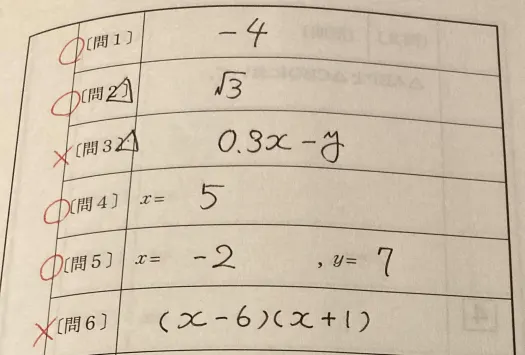 〔問1〕 -4
〔問2〕 √3
〔問3〕 0.3x-y
〔問4〕 x= 5
〔問5〕 x= -2 , y= 7
〔問6〕 (x-6)(x+1)